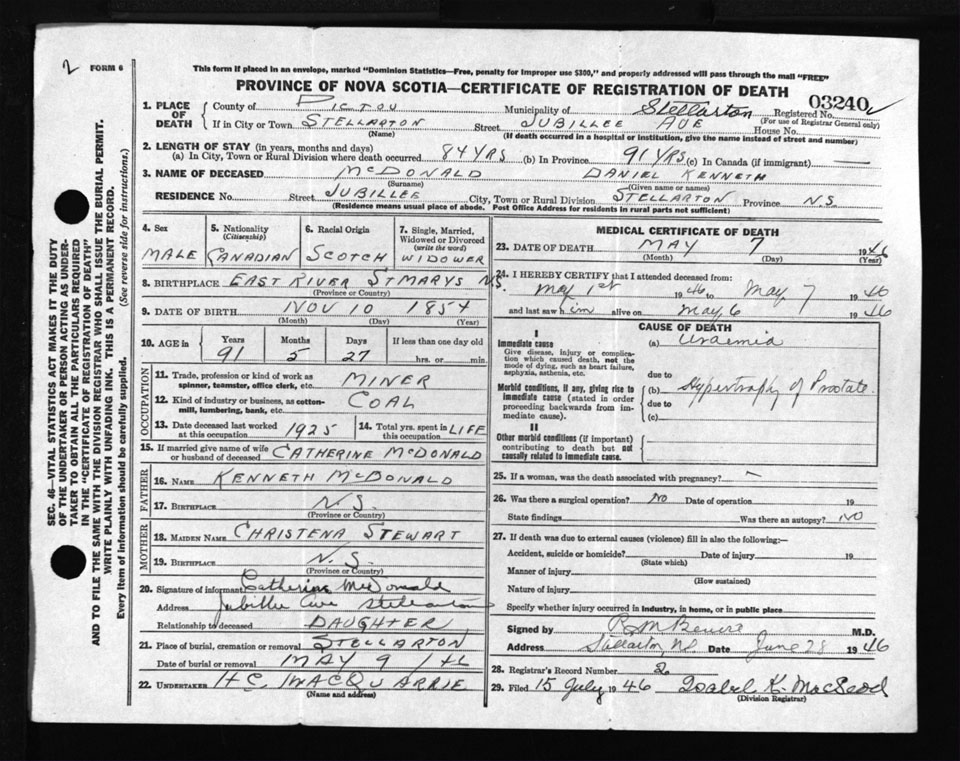 2 FORM 6
This form if placed in an envelope, marked "Dominion Statistics—Free, penalty for improper use $300," and properly addressed will pass through the mail "FREE"
PROVINCE OF NOVA SCOTIA—CERTIFICATE OF REGISTRATION OF DEATH
03240
1. PLACE OF DEATH County of PICTOU Municipality of Stellarton Registered No.
(For use of Registrar General only)
If in City or Town STELLARTON Street JUBILLEE AVE House No.
(Name) (If death occurred in a hospital or institution, give the name instead of street and number)
2. LENGTH OF STAY (in years, months and days)
(a) In City, Town or Rural Division where death occurred 84 YRS (b) In Province 91 YRS (c) In Canada (if immigrant) —
3. NAME OF DECEASED McDONALD DANIEL KENNETH
(Surname) (Given name or names)
RESIDENCE No. Street JUBILLEE City, Town or Rural Division STELLARTON Province N.S.
(Residence means usual place of abode. Post Office Address for residents in rural parts not sufficient)
4. Sex 5. Nationality (Citizenship) 6. Racial Origin 7. Single, Married, Widowed or Divorced (write the word)
MALE CANADIAN SCOTCH WIDOWER
8. BIRTHPLACE EAST RIVER ST MARYS N.S.
(Province or Country)
9. DATE OF BIRTH NOV 10 1854
(Month) (Day) (Year)
10. AGE in Years Months Days If less than one day old
91 5 27 hrs. or min.
OCCUPATION
11. Trade, profession or kind of work as spinner, teamster, office clerk, etc. MINER
12. Kind of industry or business, as cotton-mill, lumbering, bank, etc. COAL
13. Date deceased last worked at this occupation 1925 14. Total yrs. spent in this occupation LIFE
15. If married give name of wife or husband of deceased CATHERINE McDONALD
FATHER
16. NAME KENNETH McDONALD
17. BIRTHPLACE N.S.
(Province or Country)
MOTHER
18. MAIDEN NAME CHRISTENA STEWART
19. BIRTHPLACE N.S.
(Province or Country)
20. Signature of informant Catherine McDonald
Address Jubillee Ave Stellarton
Relationship to deceased DAUGHTER
21. Place of burial, cremation or removal STELLARTON
Date of burial or removal MAY 9 /46
22. UNDERTAKER H.C. MACQUARRIE
(Name and address)
MEDICAL CERTIFICATE OF DEATH
23. DATE OF DEATH MAY 7 1946
(Month) (Day) (Year)
24. I HEREBY CERTIFY that I attended deceased from:
May 1st 1946 to May 7 1946
and last saw him alive on May 6 1946
CAUSE OF DEATH
I
Immediate cause
Give disease, injury or complication which caused death, not the mode of dying, such as heart failure, asphyxia, asthenia, etc.
(a) Uraemia
due to
Morbid conditions, if any, giving rise to immediate cause (stated in order proceeding backwards from immediate cause).
(b) Hypertrophy of Prostate
due to
(c)
II
Other morbid conditions (if important) contributing to death but not causally related to immediate cause.
25. If a woman, was the death associated with pregnancy? —
26. Was there a surgical operation? NO Date of operation 19
State findings Was there an autopsy? NO
27. If death was due to external causes (violence) fill in also the following:—
Accident, suicide or homicide? Date of injury 19
(State which)
Manner of injury
(How sustained)
Nature of injury
Specify whether injury occurred in industry, in home, or in public place
Signed by M.D.
Address Stellarton NS Date June 28 1946
28. Registrar's Record Number 2
29. Filed 15 July 1946 Isabel K. MacLeod
(Division Registrar)
SEC. 46—VITAL STATISTICS ACT MAKES IT THE DUTY
OF THE UNDERTAKER OR PERSON ACTING AS UNDER-
TAKER TO OBTAIN ALL THE PARTICULARS REQUIRED
IN THE "CERTIFICATE OF REGISTRATION OF DEATH"
AND TO FILE THE SAME WITH THE DIVISION REGISTRAR WHO SHALL ISSUE THE BURIAL PERMIT.
WRITE PLAINLY WITH UNFADING INK. THIS IS A PERMANENT RECORD.
Every item of information should be carefully supplied. (See reverse side for instructions.)